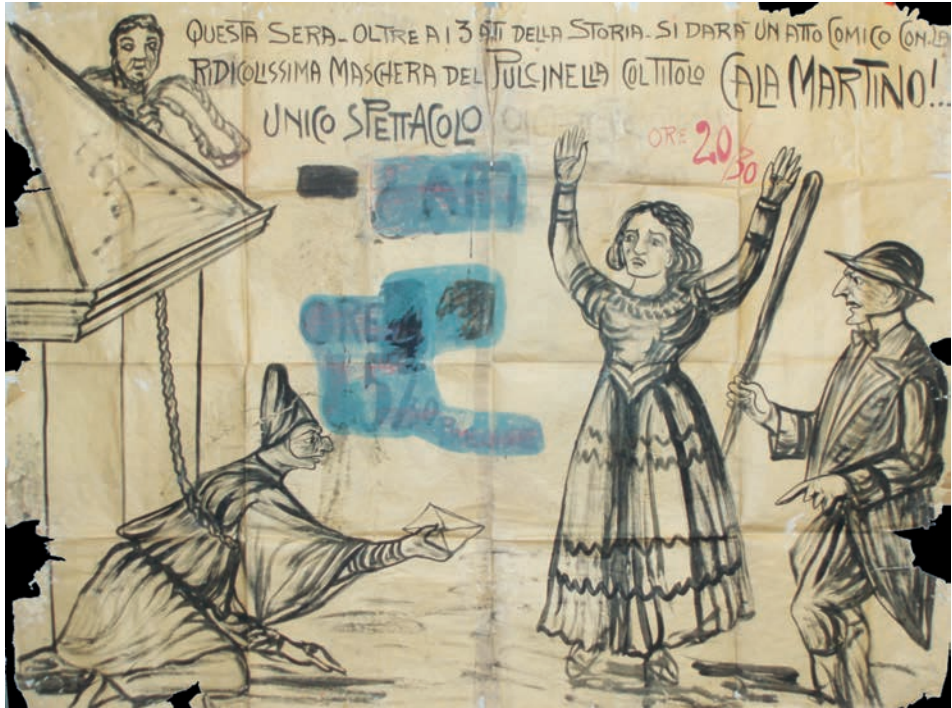 QUESTA SERA - OLTRE AI 3 ATTI DELLA STORIA - SI DARÀ UN ATTO COMICO CON LA
RIDICOLISSIMA MASCHERA DEL PULCINELLA COL TITOLO CALA MARTINO!..
UNICO SPETTACOLO
ORE 20/30
ORE